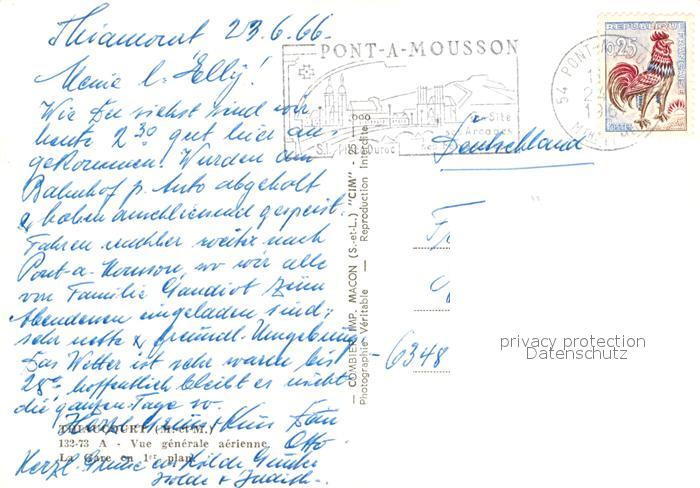 Thiaucourt 23.6.66.
Meine l. Elly!
Wie Du siehst sind wir
heute 2 30 gut hier an-
gekommen! Wurden am
Bahnhof p. Auto abgeholt
& haben anschliessend gespeist.
Fahren nachher weiter nach
Pont-a-Mousson, wo wir alle
von Familie Gaudiot zum
Abendessen eingeladen sind;
sehr nette & freundl. Umgebung
Das Wetter ist sehr warm bis
28° hoffentlich bleibt es nicht
die ganzen Tage so.
Herzl. Grüsse & Kuss Dein
Otto
Herzl. Grüsse Hilde Günter
Isolde + Judith.
THIAUCOURT (M.-et-M.)
132-73 A - Vue générale aérienne.
La Gare en 1er plan
— COMBIER IMP. MACON (S.-et-L.) "CIM" - 25
Photographie Véritable — Reproduction Interdite
PONT-A-MOUSSON
Site
Arcades
S.I.
54 PONT-A-MOUSSON
REPUBLIQUE FRANÇAISE
0,25
à
Deutschland
6348
privacy protection
Datenschutz